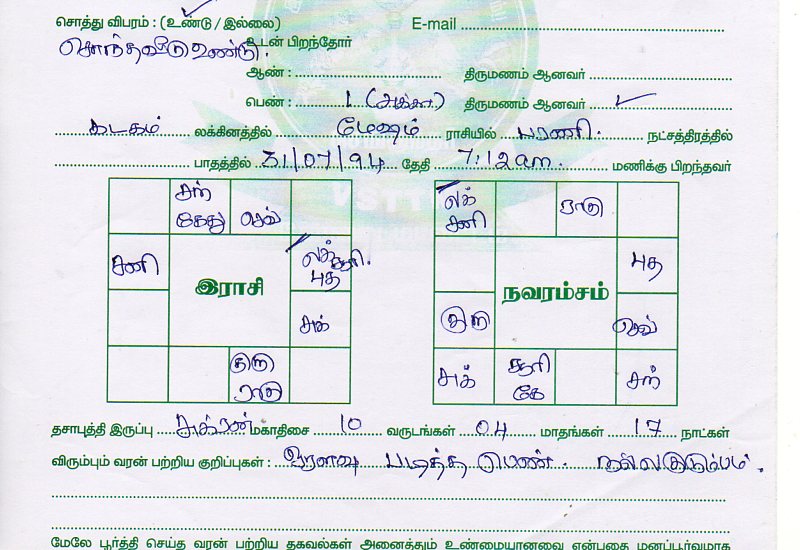 சொத்து விபரம் : (உண்டு / இல்லை) E-mail
சொந்தவீடு உண்டு. உடன் பிறந்தோர்
ஆண் : திருமணம் ஆனவர்
பெண் : 1 (அக்கா) திருமணம் ஆனவர் ✓
கடகம் லக்கினத்தில் மேஷம் ராசியில் பரணி. நட்சத்திரத்தில்
பாதத்தில் 31/07/94 தேதி 7:12am. மணிக்கு பிறந்தவர்
சந் லக் ராகு
கேது செவ் சனி
சனி லக் சூரி. புத
புத
இராசி நவாம்சம்
சுக் குரு செவ்
குரு சுக் சூரி சந்
ராகு கே
தசாபுத்தி இருப்பு சுக்ரன் மகாதிசை 10 வருடங்கள் 04 மாதங்கள் 17 நாட்கள்
விரும்பும் வரன் பற்றிய குறிப்புகள் : ஓரளவு படித்த பெண். நல்ல குடும்பம்.
மேலே பூர்த்தி செய்த வரன் பற்றிய தகவல்கள் அனைத்தும் உண்மையானவை என்பதை மனப்பூர்வமாக